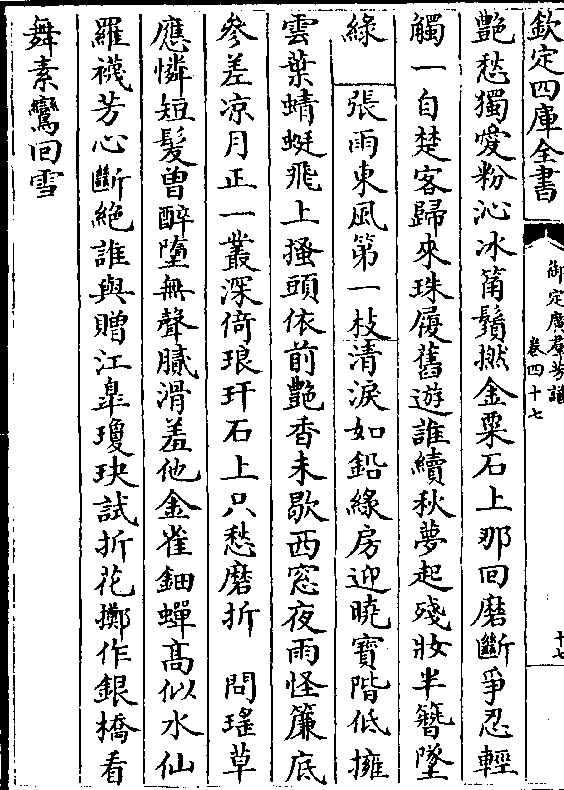 欽定四庫全書
御定廣羣芳譜
卷四十七
十七
艷愁獨愛粉沁冰筩鬚撚金粟石上那回磨斷爭忍輕
觸一自楚客歸來珠履舊遊誰續秋夢起殘妝半簪墜
綠
張雨東風第一枝清淚如鉛緣房迎曉寶階低擁
雲葉蜻蜓飛上搔頭依前艷香未歇西窓夜雨怪簾底
參差凉月正一叢深倚琅玕石上只愁磨折　問瑤草
應憐短髮曽醉墮無聲膩滑羞他金雀鈿蟬髙似水仙
羅襪芳心斷絶誰與贈江臯瓊玦試折花擲作銀橋看
舞素鸞回雪